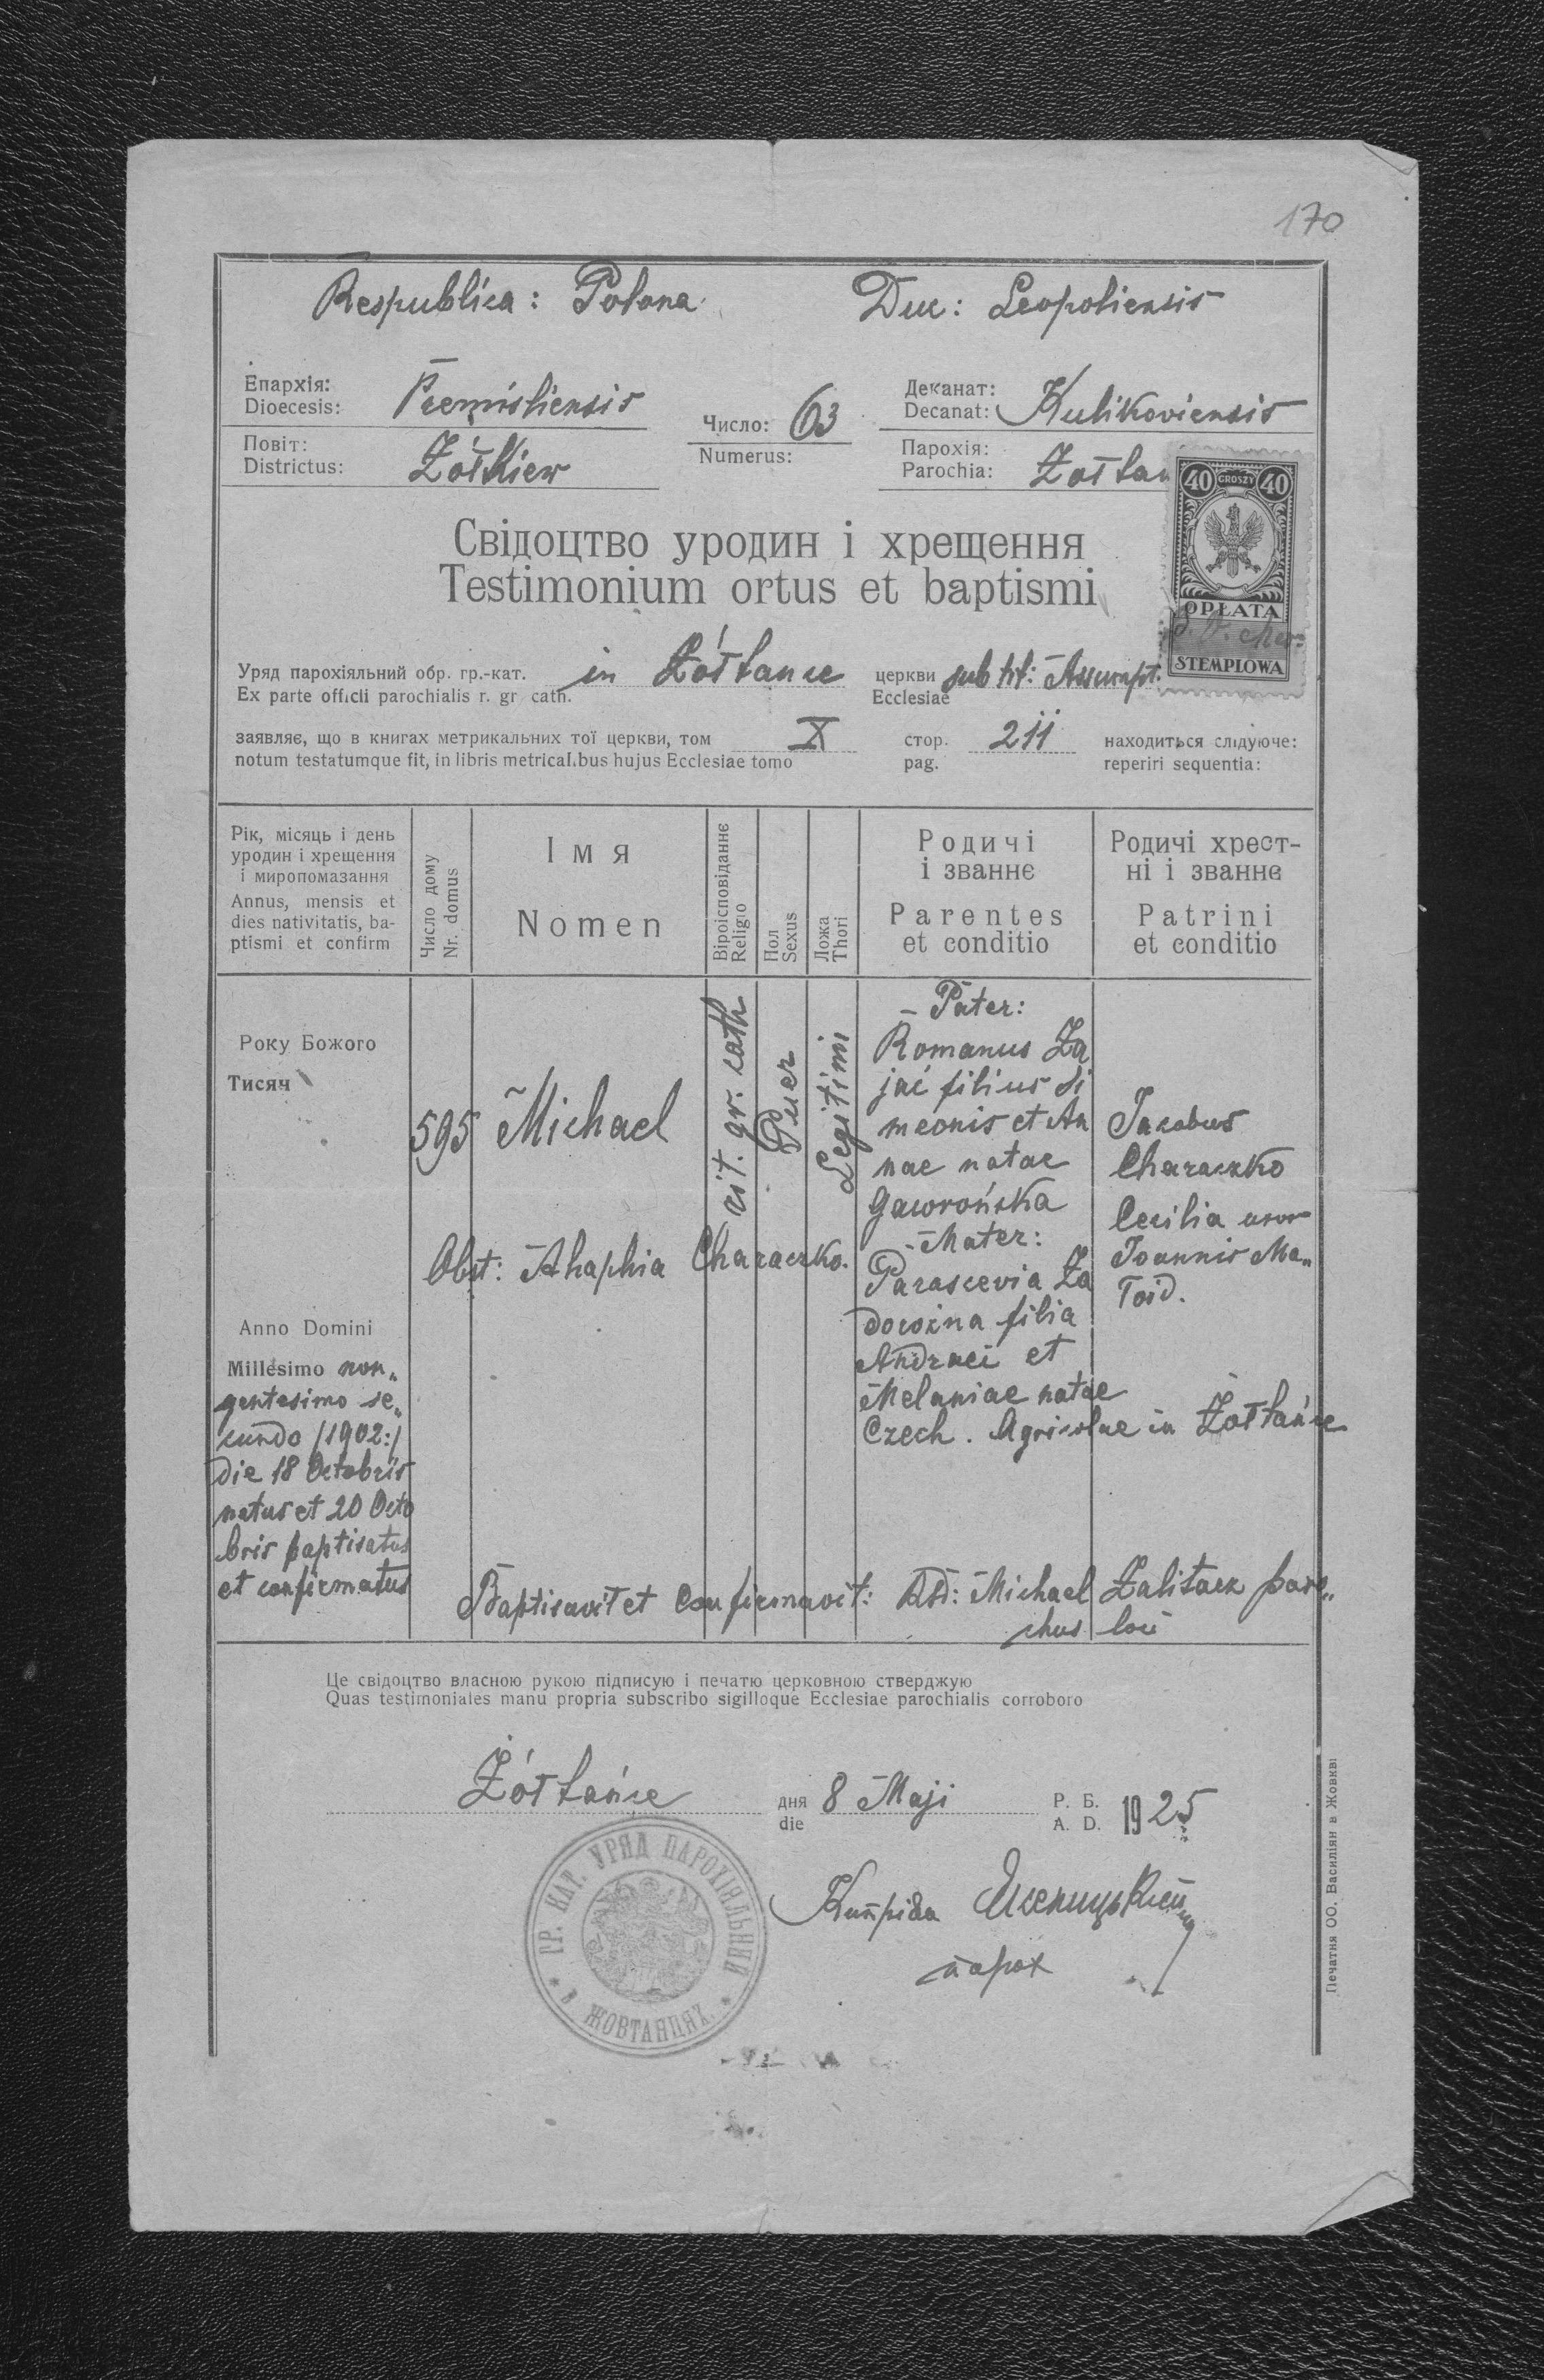 170
Respublica: Polona Duc: Leopoliensis
Епархія:
Dioecesis: Premisliensis
Число: 63
Numerus:
Деканат:
Decanat: Kulikoviensis
Повіт:
Districtus: Żółkiew
Парохія:
Parochia: Żołtan
40 GROSZY 40
OPŁATA
STEMPLOWA
Свідоцтво уродин і хрещення
Testimonium ortus et baptismi
Уряд парохіяльний обр. гр.-кат. in Żółtance церкви sub tit: Assumpt.
Ex parte officii parochialis r. gr cath. Ecclesiae
заявляє, що в книгах метрикальних тої церкви, том X стор. 211 находиться слідуюче:
notum testatumque fit, in libris metricalibus hujus Ecclesiae tomo pag. reperiri sequentia:
Рік, місяць і день
уродин і хрещення
і миропомазання
Annus, mensis et
dies nativitatis, ba-
ptismi et confirm
Число дому
Nr. domus
Імя
Nomen
Віроісповіданнє
Religio
Пол
Sexus
Ложа
Thori
Родичі
і званнє
Parentes
et conditio
Родичі хрест-
ні і званнє
Patrini
et conditio
Року Божого
Тисяч
Anno Domini
Millesimo non„
gentesimo se„
cundo /1902:/
die 18 Octobris
natus et 20 Octo
bris baptisatus
et confirmatus
595
Michael
rit. gr. cath
Puer
Legitimi
Obst: Ahaphia Characzko.
Pater:
Romanus Za
jac filius Si
meonis et An
nae natae
Gawrońska
Mater:
Parascevia Za
dorożna filia
Andreei et
Melaniae natae
Czech. Agricolae in Żołtańce
Jacobus
Characzko
Cecilia uxor
Joannis Ma„
łoid.
Baptisavit et Confirmavit: Michael Zalitacz paro„
chus loci
Це свідоцтво власною рукою підписую і печатю церковною стверджую
Quas testimoniales manu propria subscribo sigilloque Ecclesiae parochialis corroboro
Żółtańce дня 8 Maji Р. Б. 1925
die A. D.
ГР. КАТ. УРЯД ПАРОХІЯЛЬНИЙ
* в ЖОВТАНЦЯХ. *
Кипріян Ясеницький
парох
Печатня ОО. Василіян в Жовкві